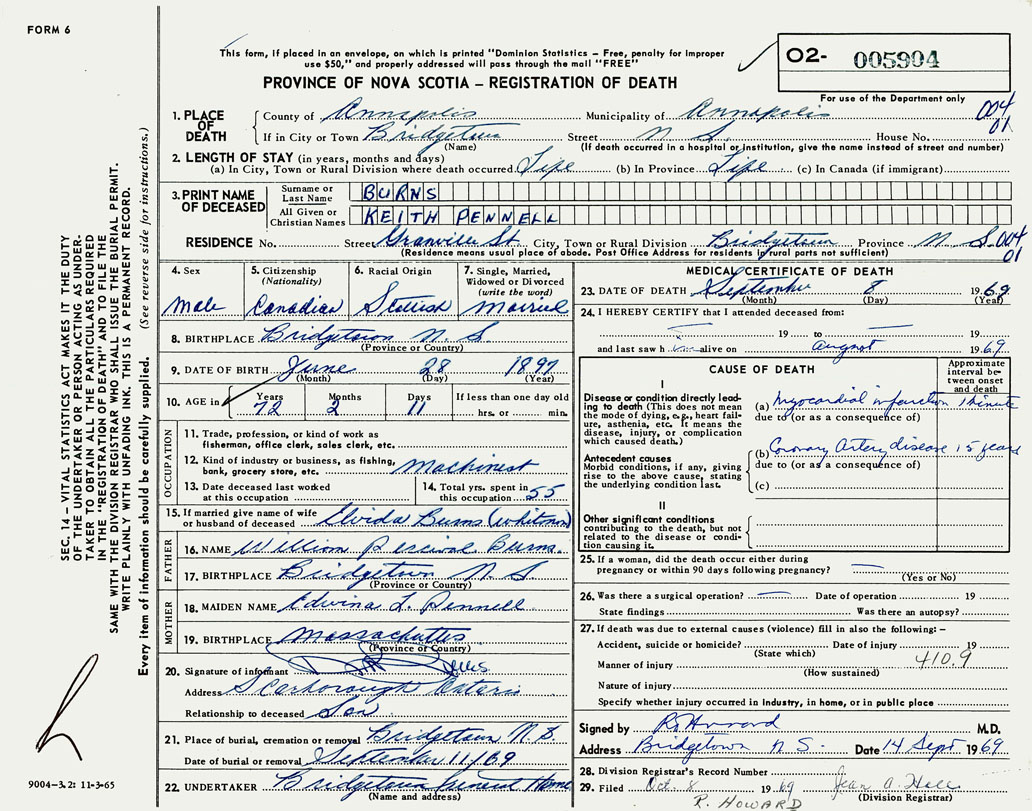 FORM 6
This form, if placed in an envelope, on which is printed "Dominion Statistics – Free, penalty for improper
use $50," and properly addressed will pass through the mail "FREE"
O2- 005994
For use of the Department only
PROVINCE OF NOVA SCOTIA – REGISTRATION OF DEATH
004
01
1. PLACE OF DEATH
County of Annapolis Municipality of Annapolis
If in City or Town Bridgetown Street N S House No.
(Name) (If death occurred in a hospital or institution, give the name instead of street and number)
2. LENGTH OF STAY (in years, months and days)
(a) In City, Town or Rural Division where death occurred Life (b) In Province Life (c) In Canada (if immigrant)
3. PRINT NAME OF DECEASED
Surname or Last Name BURNS
All Given or Christian Names KEITH PENNELL
RESIDENCE No. Street Granville St City, Town or Rural Division Bridgetown Province N S 004
(Residence means usual place of abode. Post Office Address for residents in rural parts not sufficient) 01
4. Sex
Male
5. Citizenship
(Nationality)
Canadian
6. Racial Origin
Scottish
7. Single, Married,
Widowed or Divorced
(write the word)
Married
8. BIRTHPLACE Bridgetown N. S
(Province or Country)
9. DATE OF BIRTH June 28 1897
(Month) (Day) (Year)
10. AGE in
Years Months Days If less than one day old
72 2 11 hrs. or min.
OCCUPATION
11. Trade, profession, or kind of work as
fisherman, office clerk, sales clerk, etc.
12. Kind of industry or business, as fishing,
bank, grocery store, etc. Machinest
13. Date deceased last worked
at this occupation
14. Total yrs. spent in
this occupation 55
15. If married give name of wife
or husband of deceased Elvida Burns (Whitman)
FATHER
16. NAME William Percival Burns
17. BIRTHPLACE Bridgetown N. S.
(Province or Country)
MOTHER
18. MAIDEN NAME Edwina L. Pennell
19. BIRTHPLACE Massachuttes
(Province or Country)
20. Signature of informant Burns
Address Scarborough Ontario
Relationship to deceased Son
21. Place of burial, cremation or removal Bridgetown N S.
Date of burial or removal September 11/69
22. UNDERTAKER Bridgetown Funeral Home
(Name and address)
MEDICAL CERTIFICATE OF DEATH
23. DATE OF DEATH September 8 1969
(Month) (Day) (Year)
24. I HEREBY CERTIFY that I attended deceased from:
19 to 19
and last saw him alive on August 1969
CAUSE OF DEATH
Approximate
interval be-
tween onset
and death
I
Disease or condition directly lead-
ing to death (This does not
mean the mode of dying, e.g., heart fail-
ure, asthenia, etc. It means the
disease, injury, or complication
which caused death.)
(a) Myocardial infarction 1 minute
due to (or as a consequence of)
Antecedent causes
Morbid conditions, if any, giving
rise to the above cause, stating
the underlying condition last.
(b) Coronary Artery disease 15 years
due to (or as a consequence of)
(c)
II
Other significant conditions
contributing to the death, but not
related to the disease or condi-
tion causing it.
25. If a woman, did the death occur either during
pregnancy or within 90 days following pregnancy?
(Yes or No)
26. Was there a surgical operation? Date of operation 19
State findings Was there an autopsy?
27. If death was due to external causes (violence) fill in also the following: –
Accident, suicide or homicide? Date of injury 19
(State which) 410.9
Manner of injury
(How sustained)
Nature of injury
Specify whether injury occurred in Industry, in home, or in public place
Signed by R. Howard M.D.
Address Bridgetown N S. Date 14 Sept 1969
28. Division Registrar's Record Number
29. Filed Oct. 8 1969 Jean A. Hall
(Division Registrar)
R. HOWARD
SEC. 14 – VITAL STATISTICS ACT MAKES IT THE DUTY
OF THE UNDERTAKER OR PERSON ACTING AS UNDER-
TAKER TO OBTAIN ALL THE PARTICULARS REQUIRED
IN THE "REGISTRATION OF DEATH" AND TO FILE THE
SAME WITH THE DIVISION REGISTRAR WHO SHALL ISSUE THE BURIAL PERMIT.
WRITE PLAINLY WITH UNFADING INK. THIS IS A PERMANENT RECORD.
Every item of information should be carefully supplied. (See reverse side for instructions.)
9004-3.2: 11-3-65